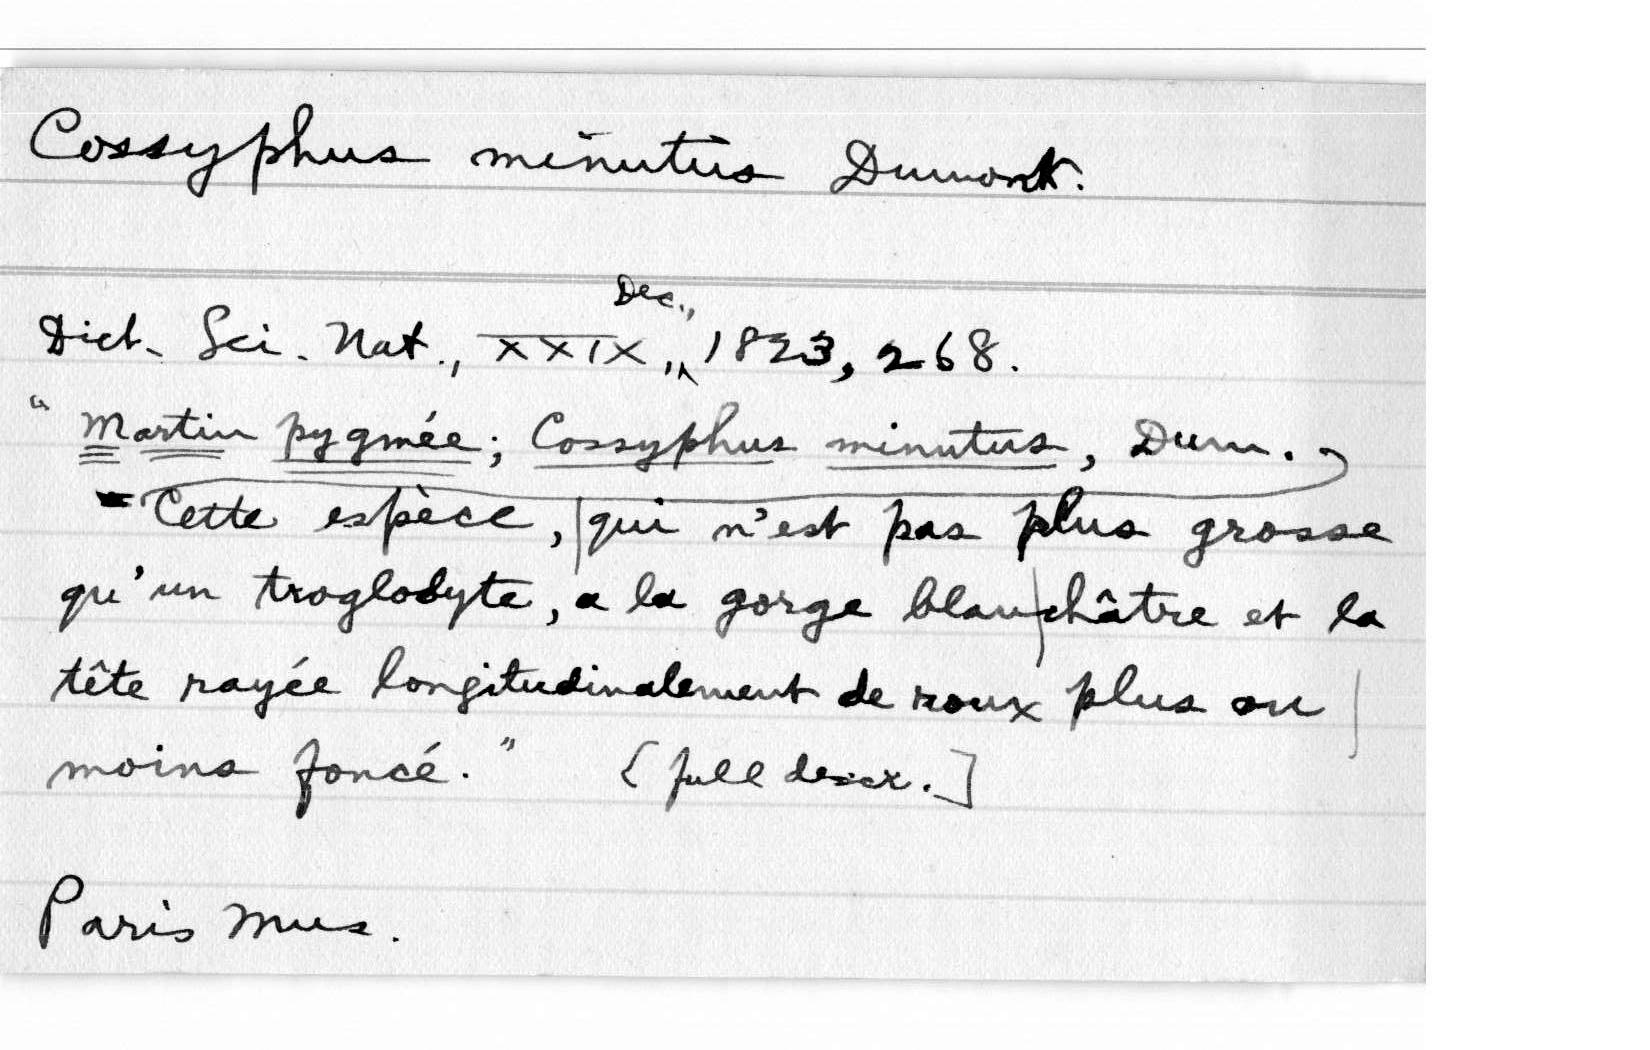 Cossyphus minutus Dumont.
Dec.,
Dict. Sci. Nat., XXIX, 1823, 268.
"Martin pygmée; Cossyphus minutus, Dum.
Cette espèce, qui n'est pas plus grosse
qu'un troglodyte, a la gorge blanchâtre et la
tête rayée longitudinalement de roux plus ou
moins foncé." [full descr.]
Paris Mus.